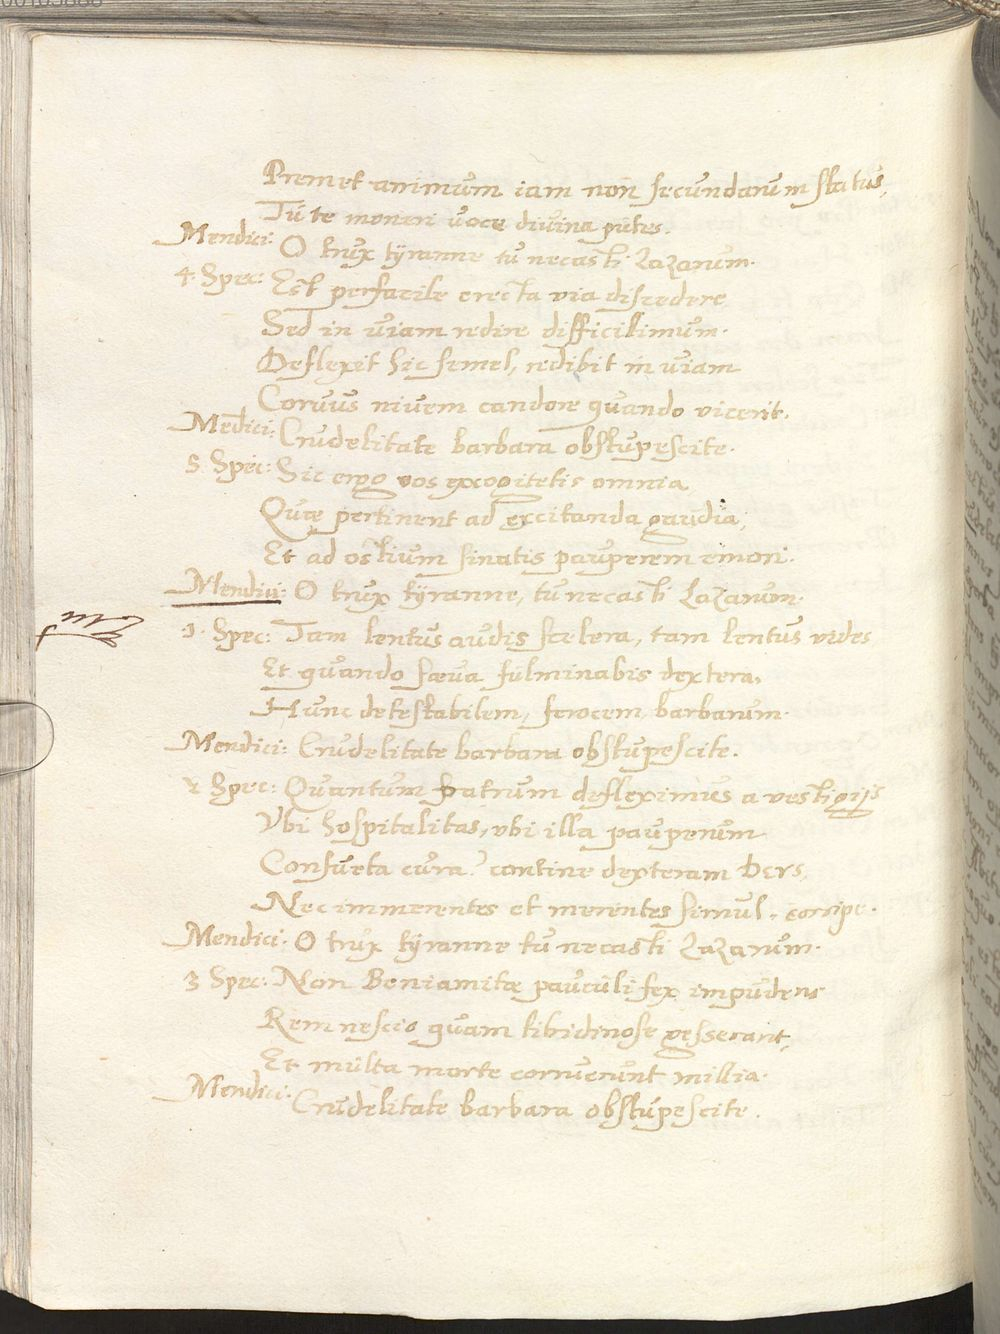 Premet animum iam non secundarum status,
Tu te moneri voce divina putes.
Mendici: O trux tÿranne tu necasti Lazarum.
4. Spec: Est perfacile erecta via discedere
Sed in viam redire difficillimum.
Deflexit hic semel, redibit in viam
Corvus nivem candore quando vicerit.
Medici: Crudelitate barbara obstupescite.
5 Spec: Sic ergo vos excogitetis omnia
Quæ pertinent ad excitanda gaudia,
Et ad ostium sinatis pauperem emori.
Mendici: O trux tÿranne, tu necasti Lazarum.
1. Spec: Tam lentus audis scelera, tam lentus vides
Et quando sæva fulminabis dextera,
Hunc detestabilem, ferocem barbarum.
Mendici: Crudelitate barbara obstupescite.
2 Spec: Quantum patrum defleximus a vestigijs
Vbi hospitalitas, vbi illa pauperum
Consueta cura? contine dexteram Devs,
Nec immerentes et merentes simul, corripe.
Mendici: O trux tÿranne tu necasti Lazarum.
3 Spec: Non Beniamitæ pauculi fex impudens
Rem nescio quam libidinose gesserant,
Et multa morte corruerunt millia.
Mendici: Crudelitate barbara obstupescite.